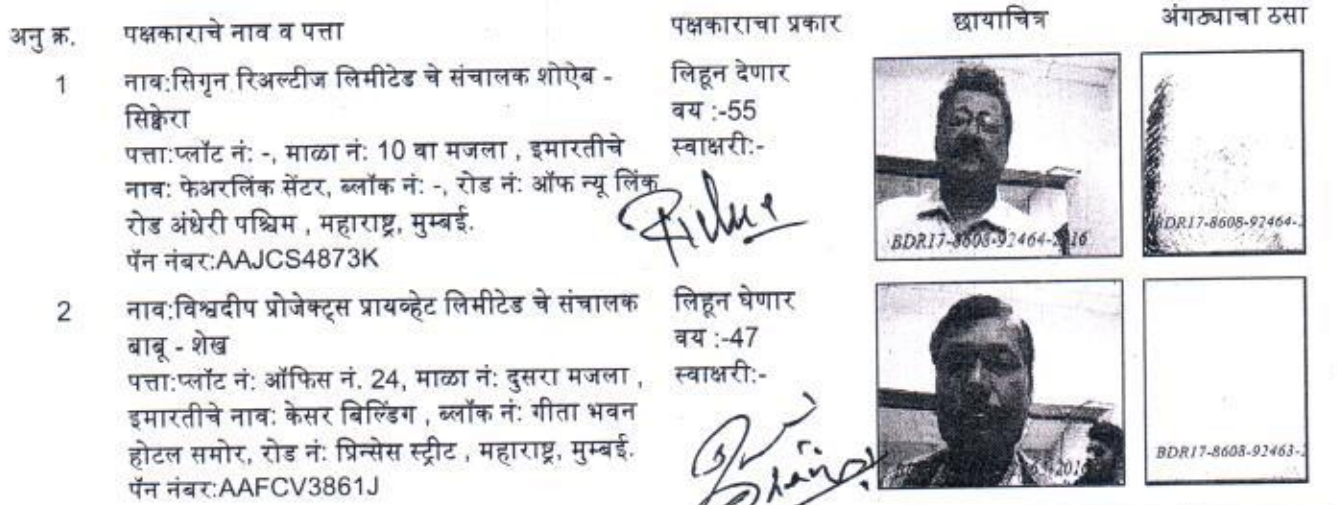 अनु क्र. पक्षकाराचे नाव व पत्ता पक्षकाराचा प्रकार छायाचित्र अंगठ्याचा ठसा
1 नाव:सिगृन रिअल्टीज लिमीटेड चे संचालक शोऐब - लिहून देणार
सिक्वेरा वय :-55
पत्ता:प्लॉट नं: -, माळा नं: 10 वा मजला , इमारतीचे स्वाक्षरी:-
नाव: फेअरलिंक सेंटर, ब्लॉक नं: -, रोड नं: ऑफ न्यू लिंक
रोड अंधेरी पश्चिम , महाराष्ट्र, मुम्बई.
पॅन नंबर:AAJCS4873K
BDR17-8608-92464-2016 BDR17-8608-92464-
2 नाव:विश्वदीप प्रोजेक्ट्स प्रायव्हेट लिमीटेड चे संचालक लिहून घेणार
बाबू - शेख वय :-47
पत्ता:प्लॉट नं: ऑफिस नं. 24, माळा नं: दुसरा मजला , स्वाक्षरी:-
इमारतीचे नाव: केसर बिल्डिंग , ब्लॉक नं: गीता भवन
होटल समोर, रोड नं: प्रिन्सेस स्ट्रीट , महाराष्ट्र, मुम्बई.
पॅन नंबर:AAFCV3861J
BDR17-8608-92463-